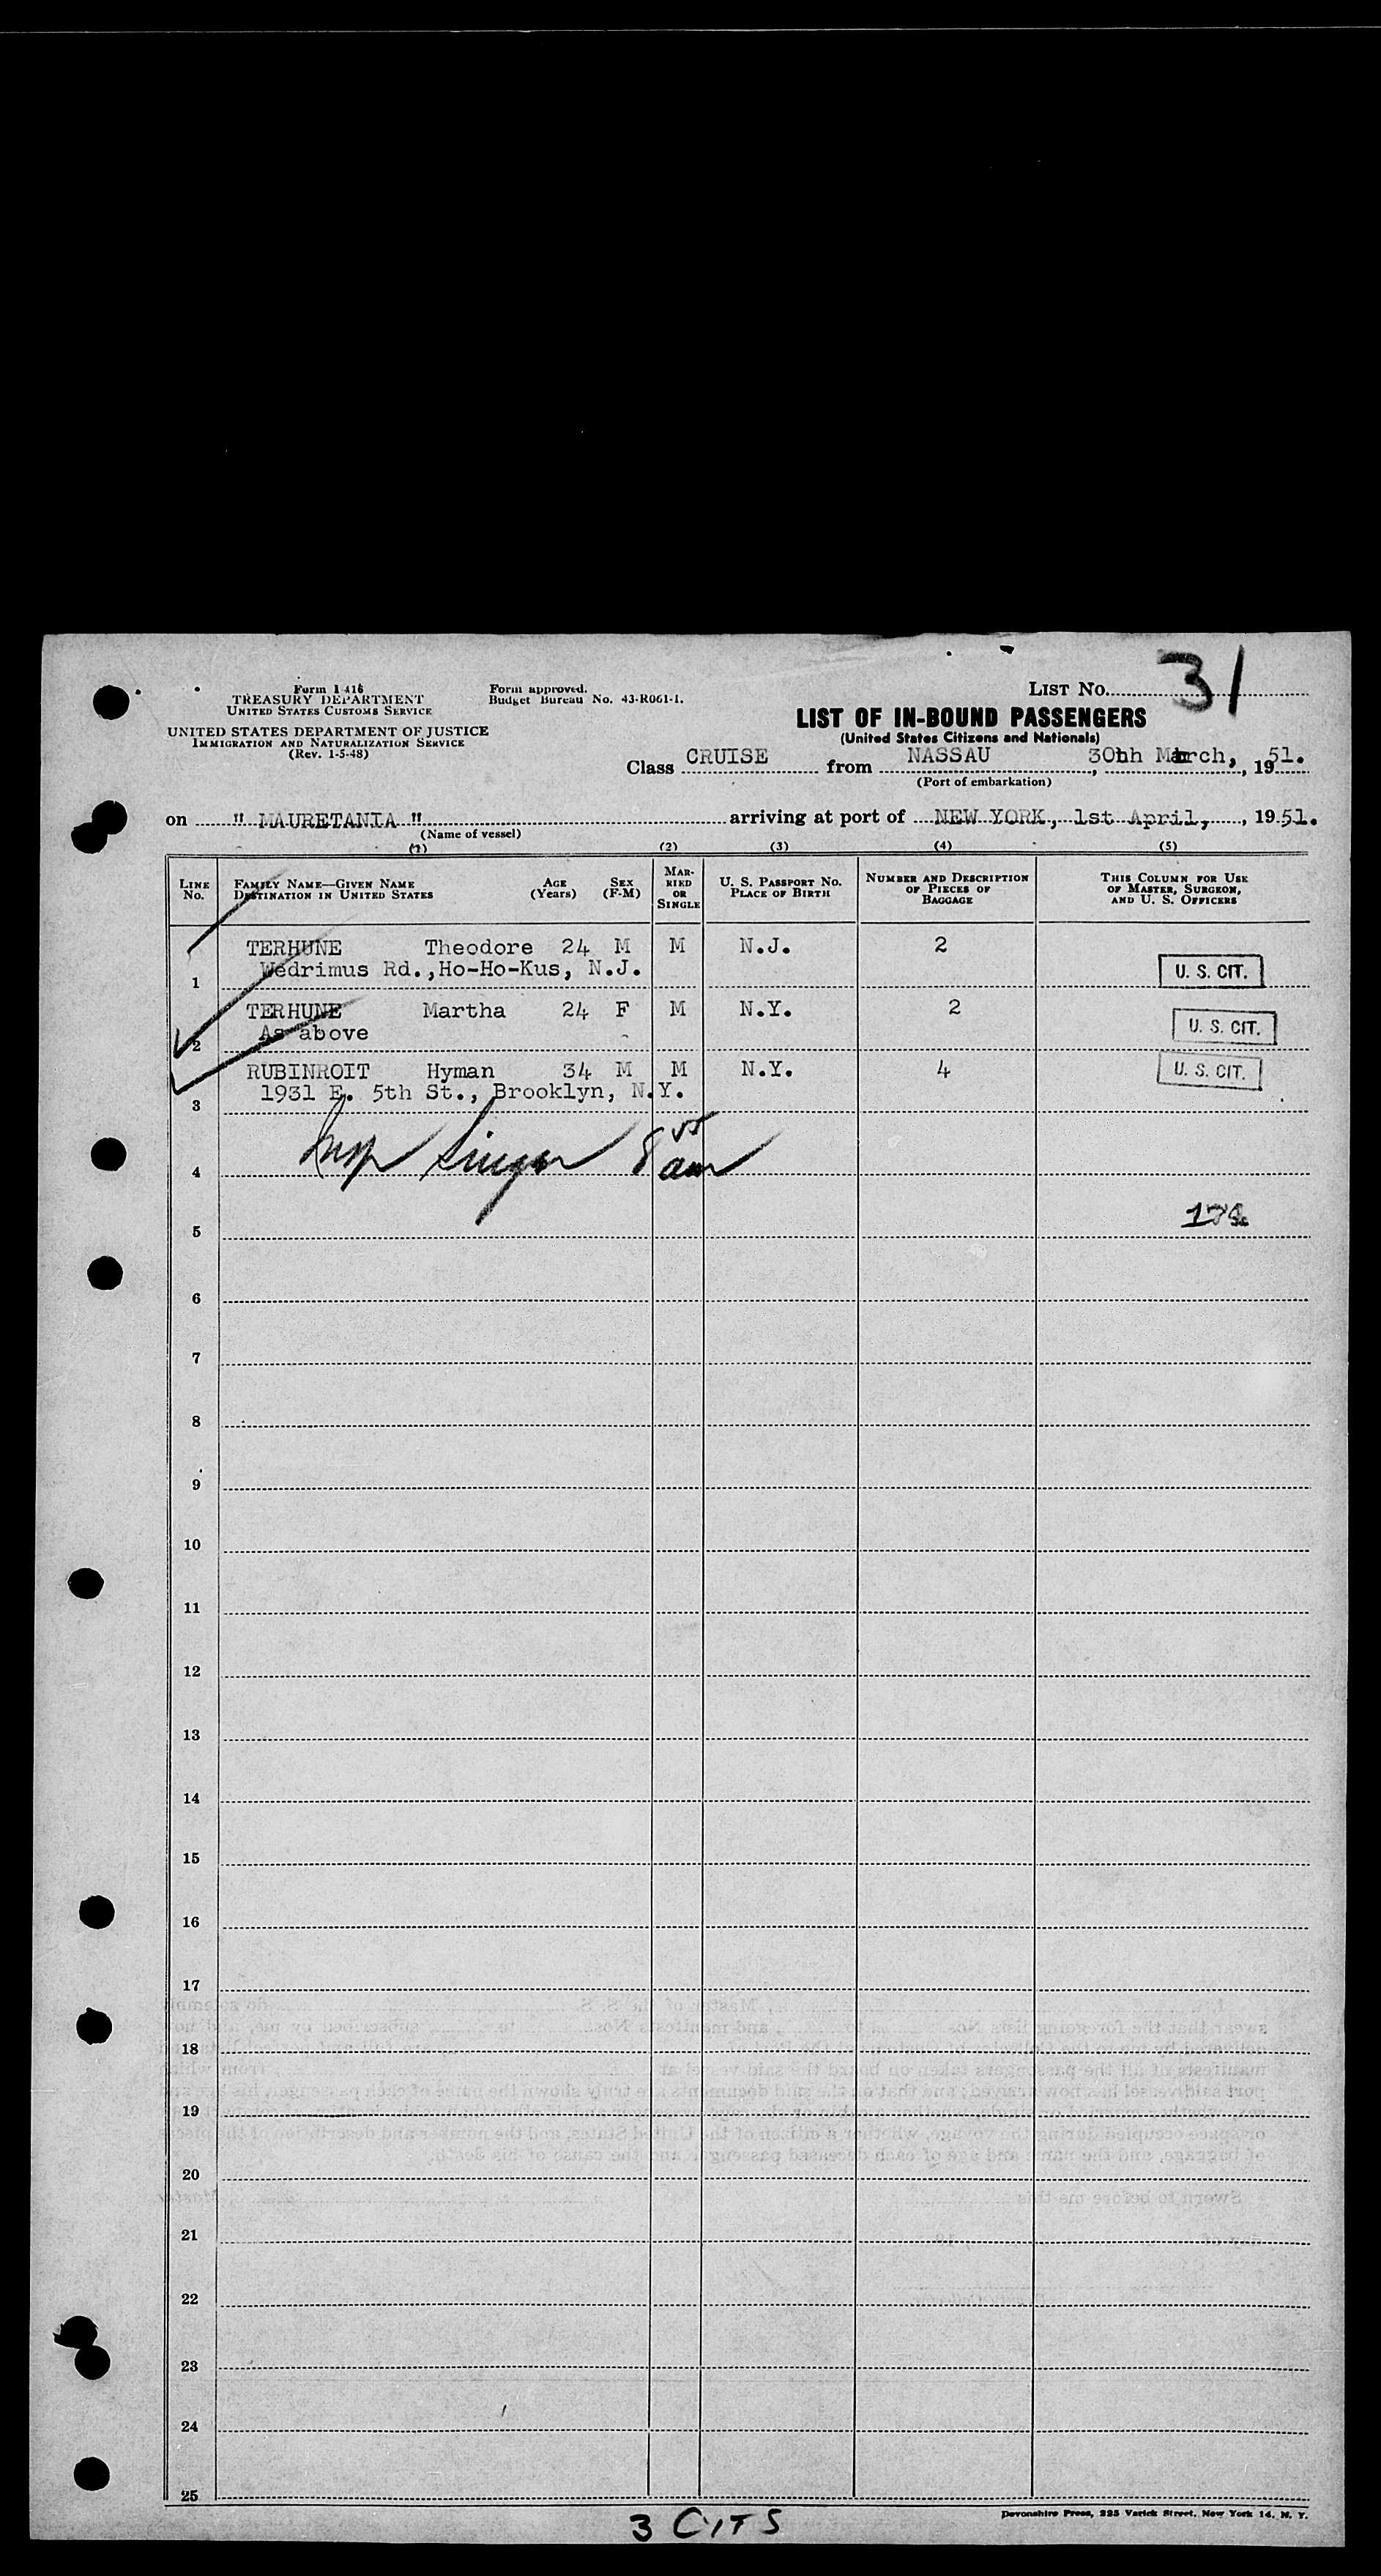 Form I 416
TREASURY DEPARTMENT
UNITED STATES CUSTOMS SERVICE
UNITED STATES DEPARTMENT OF JUSTICE
IMMIGRATION AND NATURALIZATION SERVICE
(Rev. 1-5-48)
Form approved.
Budget Bureau No. 43-R061-1.
LIST NO. 31
LIST OF IN-BOUND PASSENGERS
(United States Citizens and Nationals)
Class CRUISE from NASSAU 30th March, 19 51.
(Port of embarkation)
on " MAURETANIA " arriving at port of NEW YORK, 1st April, 19 51.
(Name of vessel)
(1) (2) (3) (4) (5)
LINE NO. FAMILY NAME—GIVEN NAME DESTINATION IN UNITED STATES AGE (Years) SEX (F-M) MARRIED OR SINGLE U. S. PASSPORT NO. PLACE OF BIRTH NUMBER AND DESCRIPTION OF PIECES OF BAGGAGE THIS COLUMN FOR USE OF MASTER, SURGEON, AND U. S. OFFICERS
TERHUNE Theodore 24 M M N.J. 2
1 Wedrimus Rd., Ho-Ho-Kus, N.J. U. S. CIT.
TERHUNE Martha 24 F M N.Y. 2
2 As above U. S. CIT.
RUBINROIT Hyman 34 M M N.Y. 4 U. S. CIT.
3 1931 E. 5th St., Brooklyn, N.Y.
4 Insp Singer 8 am
5
6
7
8
9
10
11
12
13
14
15
16
17
18
19
20
21
22
23
24
25
3 CITS
Devonshire Press, 225 Varick Street, New York 14, N. Y.